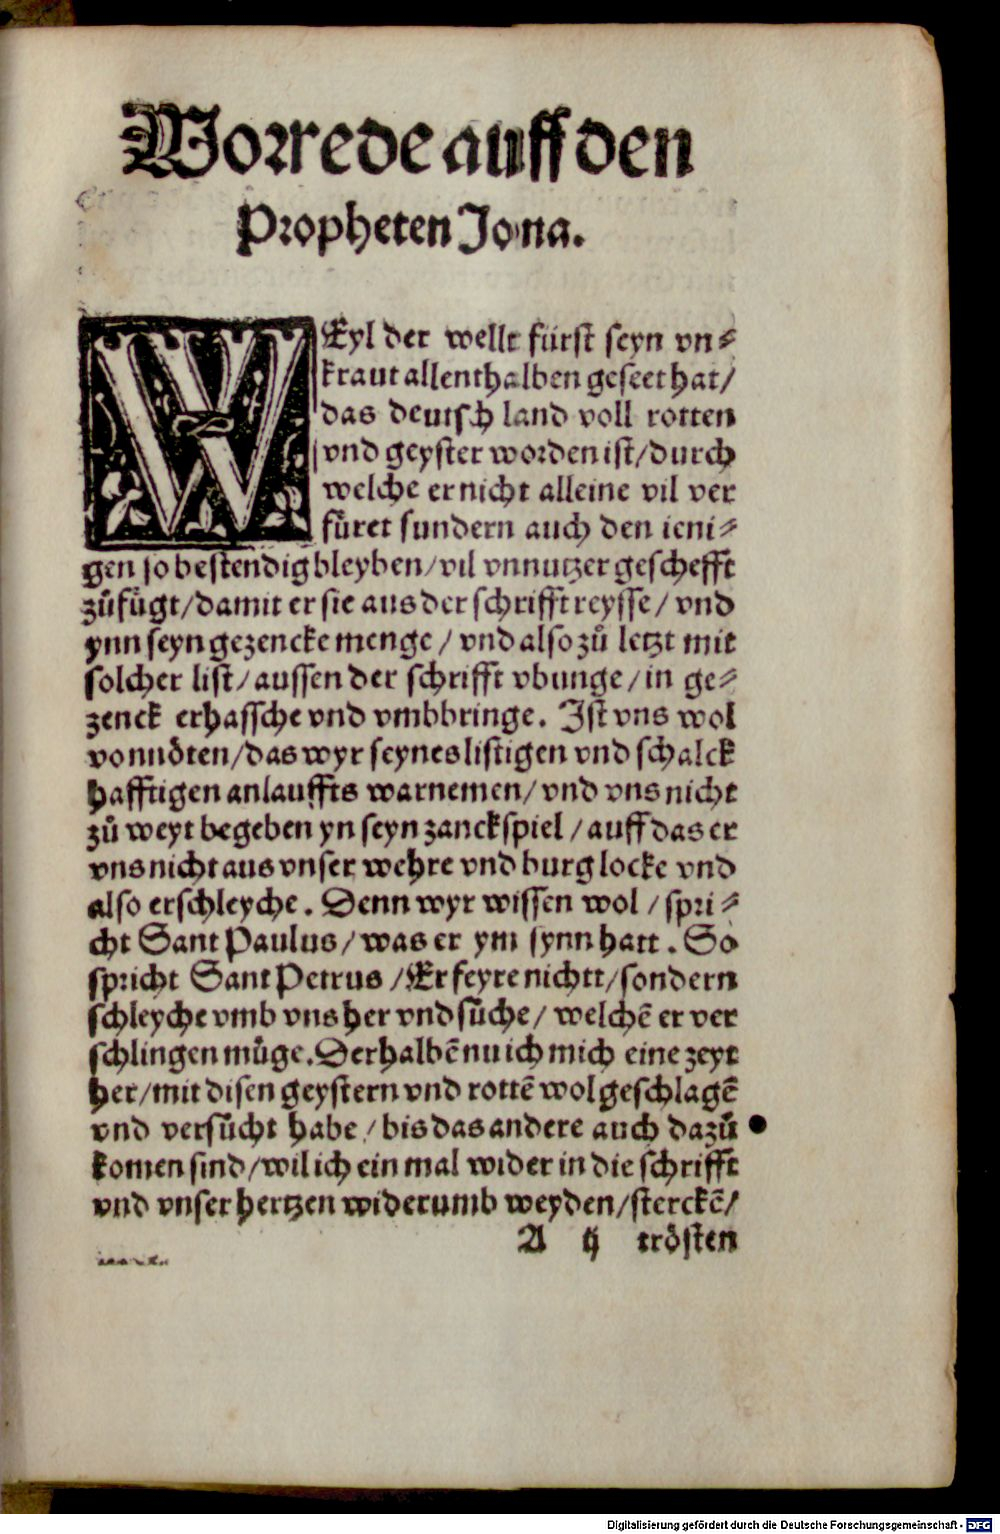 Vorrede auff den
Propheten Jona.
WEyl der wellt fürst seyn vn⸗
kraut allenthalben geseet hat/
das deutsch land voll rotten
vnd geyster worden ist/durch
welche er nicht alleine vil ver
füret sundern auch den ieni⸗
gen so bestendig bleyben/vil vnnutzer geschefft
zůfůgt/damit er sie aus der schrifft reysse/ vnd
ynn seyn gezencke menge/ vnd also zů letzt mit
solcher list/ aussen der schrifft vbunge/in ge⸗
zenck erhassche vnd vmbbringe. Ist vns wol
von nöten/das wyr seynes listigen vnd schalck
hafftigen anlauffts warnemen/ vnd vns nicht
zů weyt begeben yn seyn zanckspiel/auff das er
vns nicht aus vnser wehre vnd burg locke vnd
also erschleyche. Denn wyr wissen wol/spri⸗
cht Sant Paulus/was er ym synn hatt. So
spricht Sant Petrus/Er feyre nichtt/sondern
schleyche vmb vns her vnd sůche/ welchē er ver
schlingen můge. Derhalbē nu ich mich eine zeyt
her/mit disen geystern vnd rottē wol geschlagē
vnd versůcht habe/bis das andere auch dazů
komen sind/wil ich ein mal wider in die schrifft
vnd vnser hertzen widerumb weyden/sterckē/
A ij trösten
Digitalisierung gefördert durch die Deutsche Forschungsgemeinschaft - DFG